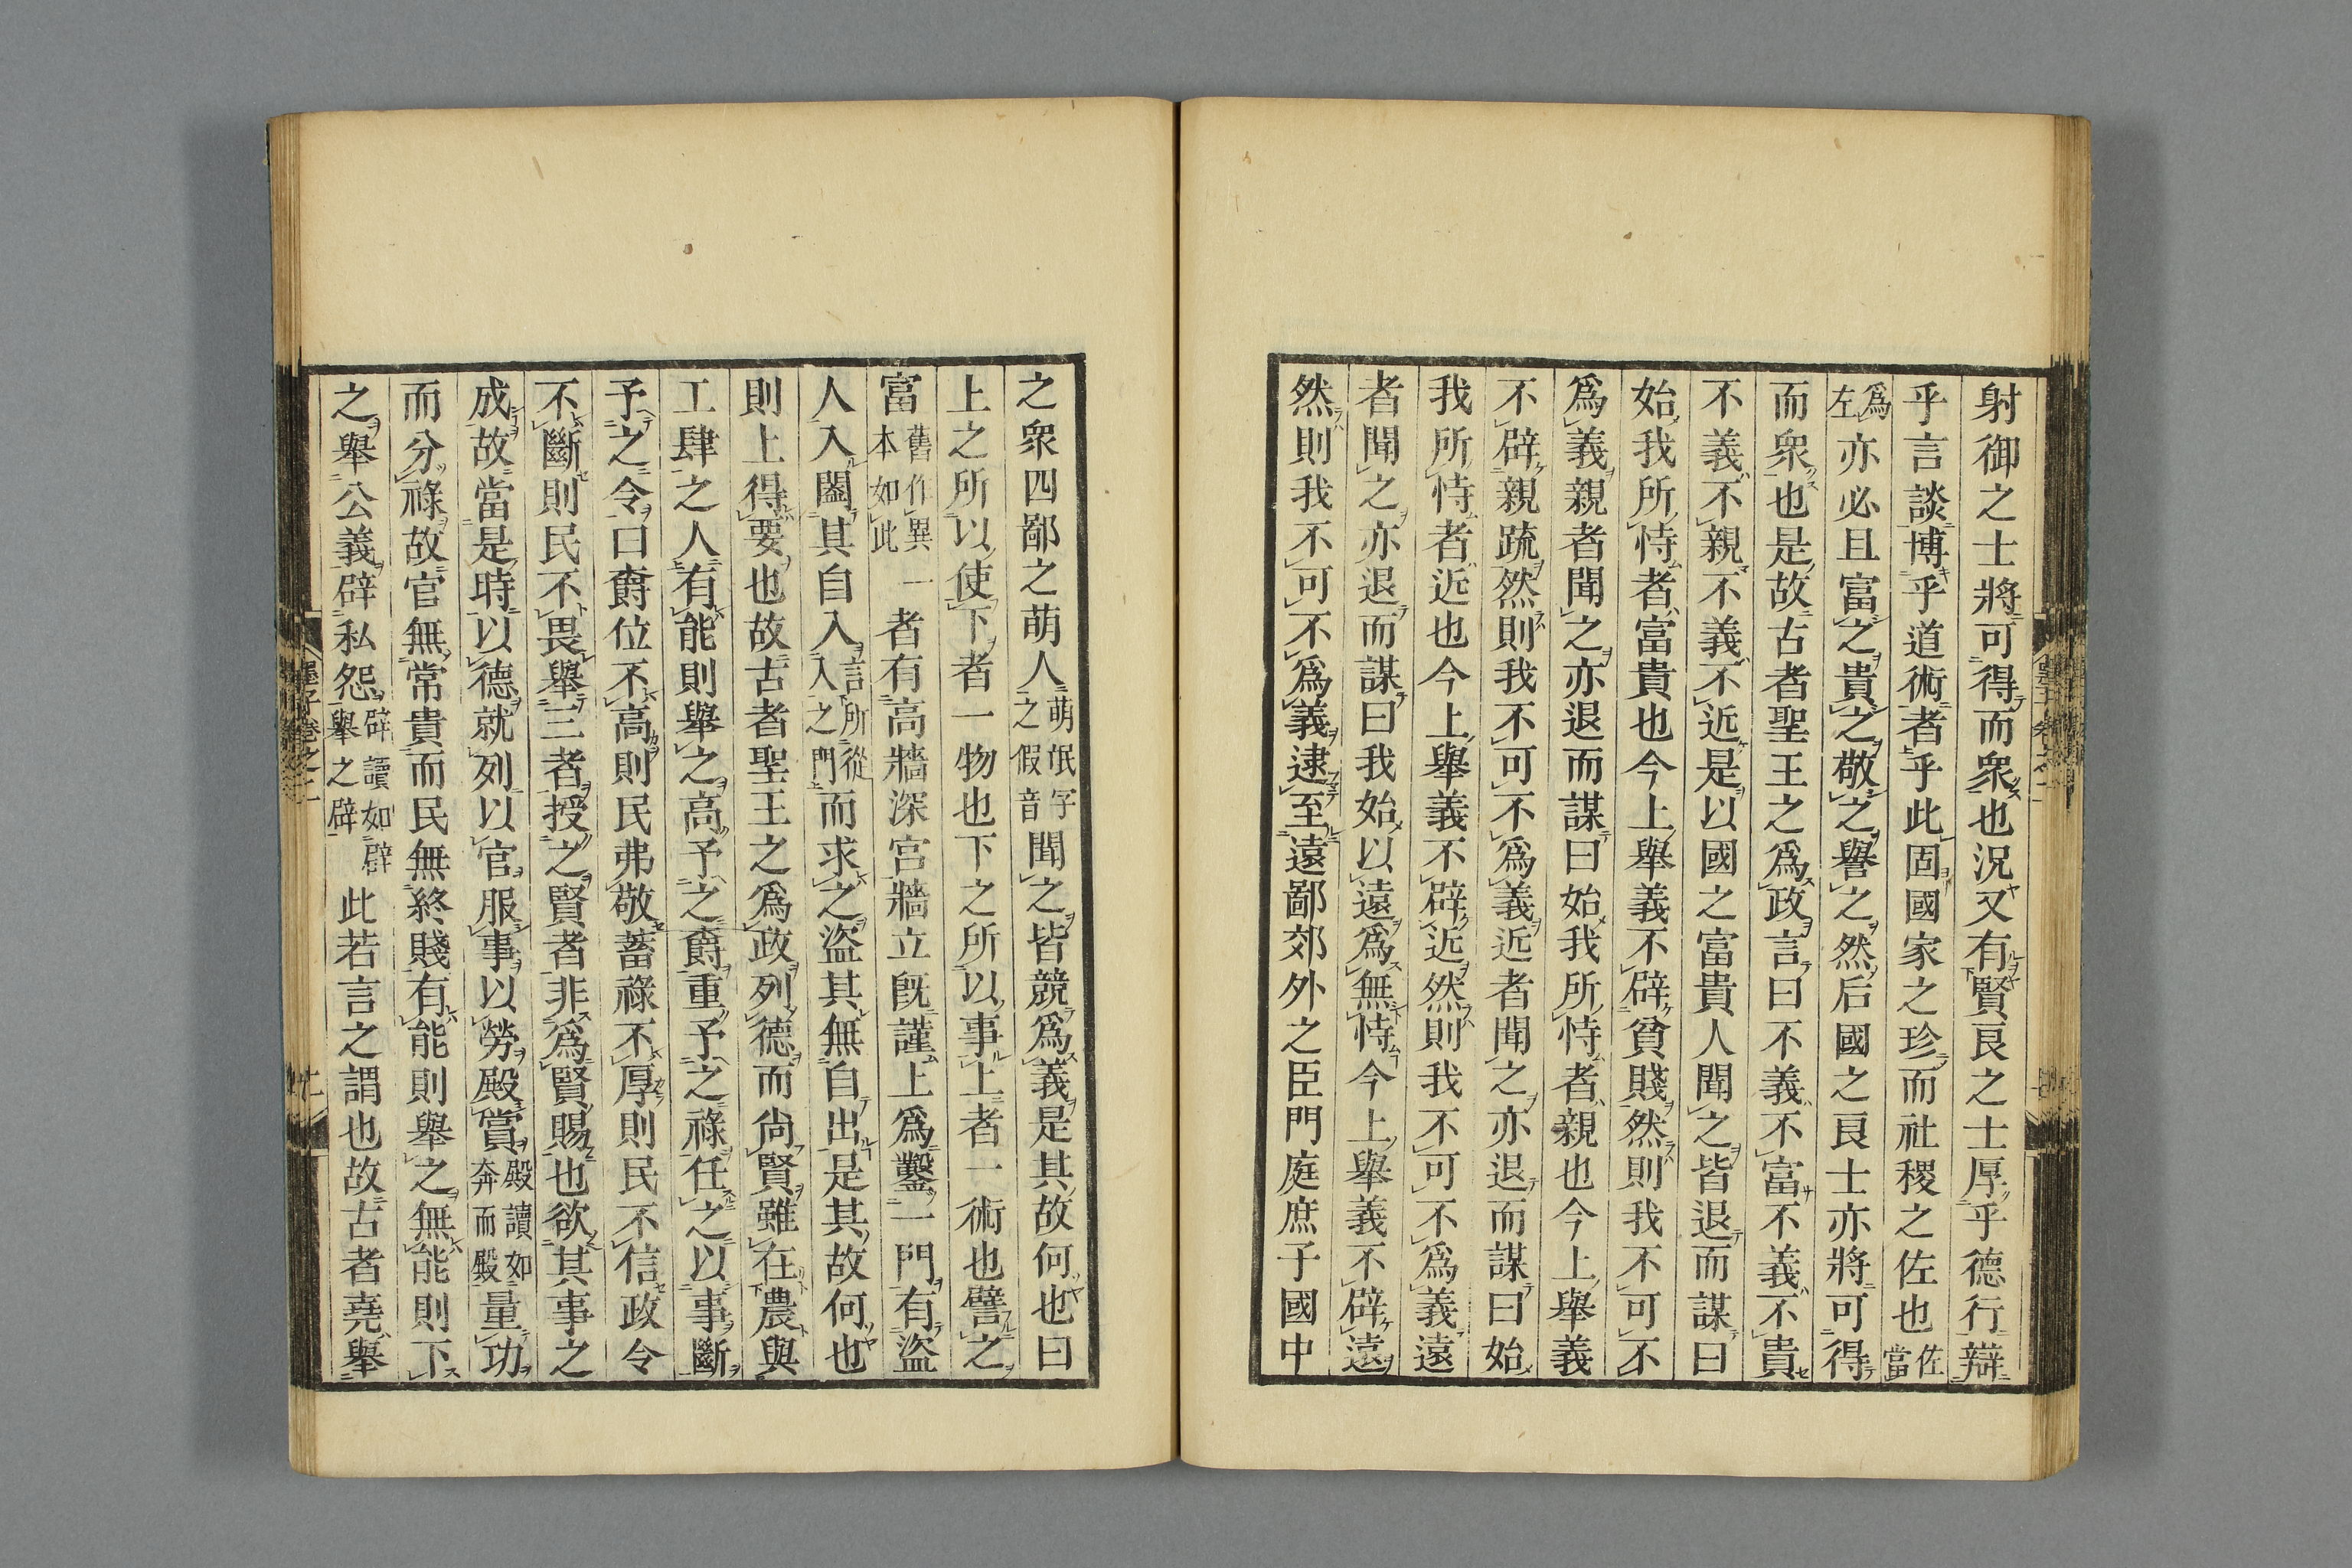 射御之士將可得而衆也況又有賢良之士厚乎德行辯
乎言談博乎道術者乎此固國家之珍而社稷之佐也佐當
爲左亦必且富之貴之敬之譽之然后國之良士亦將可得
而衆也是故古者聖王之爲政言曰不義不富不義不貴
不義不親不義不近是以國之富貴人聞之皆退而謀曰
始我所恃者富貴也今上舉義不辟貧賤然則我不可不
爲義親者聞之亦退而謀曰始我所恃者親也今上舉義
不辟親疏然則我不可不爲義近者聞之亦退而謀曰始
我所恃者近也今上舉義不辟近然則我不可不爲義遠
者聞之亦退而謀曰我始以遠爲無恃今上舉義不辟遠
然則我不可不爲義逮至遠鄙郊外之臣門庭庶子國中
之衆四鄙之萌人萌氓字之假音聞之皆競爲義是其故何也曰
上之所以使下者一物也下之所以事上者一術也譬之
富舊作異本如此一者有高牆深宮牆立旣謹上爲鑿一門有盜
人入闔其自入言所從入之門而求之盜其無自出是其故何也
則上得要也故古者聖王之爲政列德而尚賢雖在農與
工肆之人有能則舉之高予之爵重予之祿任之以事斷
予之令曰爵位不高則民弗敬蓄祿不厚則民不信政令
不斷則民不畏舉三者授之賢者非爲賢賜也欲其事之
成故當是時以德就列以官服事以勞殿賞殿讀如奔而殿量功
而分祿故官無常貴而民無終賤有能則舉之無能則下
之舉公義辟私怨辟讀如辟舉之辟此若言之謂也故古者堯舉
墨子卷之二